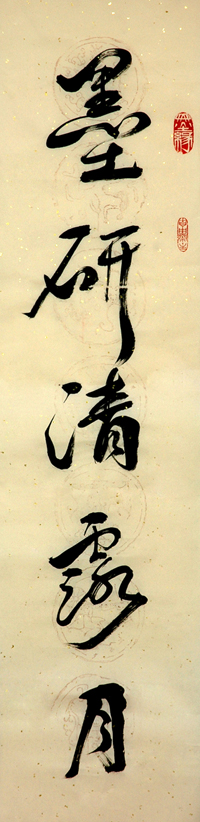 墨研清露月